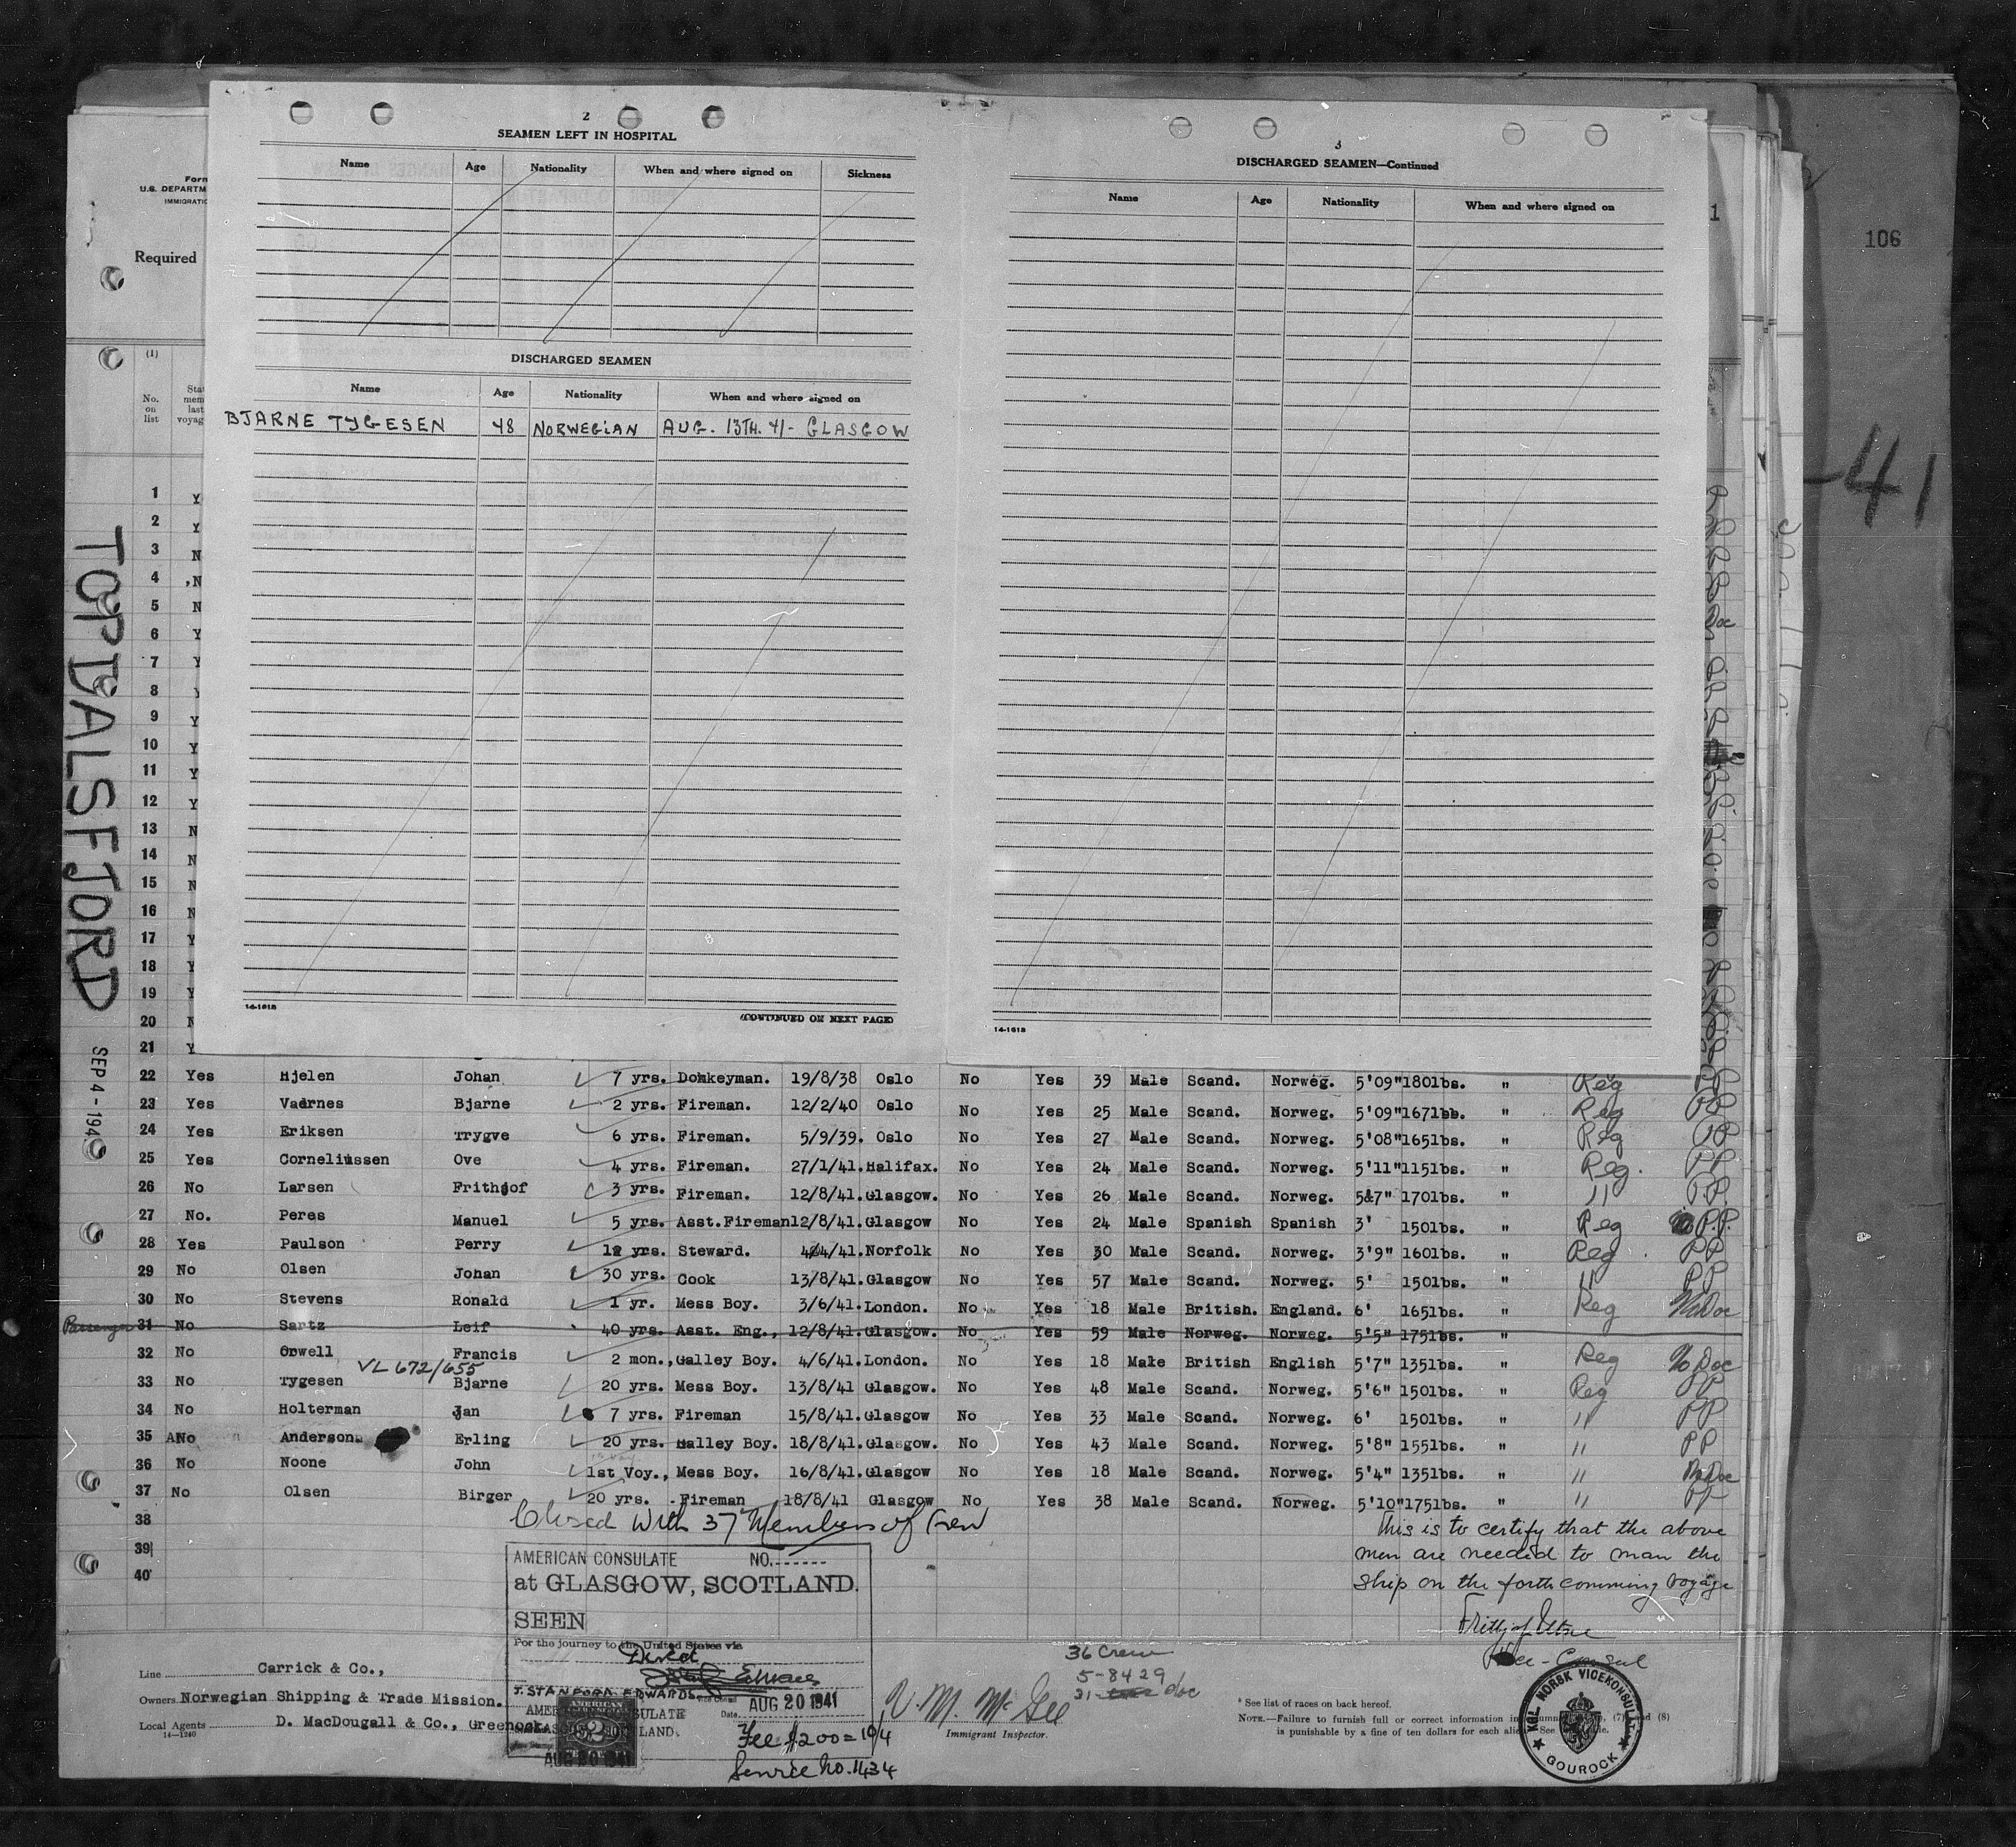 2
SEAMEN LEFT IN HOSPITAL
Name Age Nationality When and where signed on Sickness
DISCHARGED SEAMEN
Name Age Nationality When and where signed on
BJARNE TYGESEN 48 NORWEGIAN AUG. 13TH. 41 - GLASGOW
14-1618
(CONTINUED ON NEXT PAGE)
3
DISCHARGED SEAMEN—Continued
Name Age Nationality When and where signed on
14-1618
Form
U.S. DEPARTM
IMMIGRATIO
Required
1
106
-41
(1)
No. on list
Stat
mem
last
voyag
TOPDALSFJORD
SEP 4 - 194
1 Y
2 Y
3 N
4 N
5 N
6 Y
7 Y
8
9 Y
10 Y
11 Y
12 Y
13 N
14 N
15 N
16 N
17 Y
18 Y
19 Y
20 N
21 Y
22 Yes Hjelen Johan 7 yrs. Donkeyman. 19/8/38 Oslo No Yes 39 Male Scand. Norweg. 5'09" 180lbs. " Reg PP
23 Yes Vaernes Bjarne 2 yrs. Fireman. 12/2/40 Oslo No Yes 25 Male Scand. Norweg. 5'09" 167lbs. " Reg PP
24 Yes Eriksen Trygve 6 yrs. Fireman. 5/9/39. Oslo No Yes 27 Male Scand. Norweg. 5'08" 165lbs. " Reg PP
25 Yes Corneliussen Ove 4 yrs. Fireman. 27/1/41. Halifax. No Yes 24 Male Scand. Norweg. 5'11" 115lbs. " Reg. PP
26 No Larsen Frithjof 3 yrs. Fireman. 12/8/41. Glasgow. No Yes 26 Male Scand. Norweg. 5&7" 170lbs. " " P.P.
27 No. Peres Manuel 5 yrs. Asst.Fireman 12/8/41. Glasgow No Yes 24 Male Spanish Spanish 3' 150lbs. " Reg P.P.
28 Yes Paulson Perry 12 yrs. Steward. 4/4/41. Norfolk No Yes 30 Male Scand. Norweg. 3'9" 160lbs. " Reg PP
29 No Olsen Johan 30 yrs. Cook 13/8/41. Glasgow No Yes 57 Male Scand. Norweg. 5' 150lbs. " " PP
30 No Stevens Ronald 1 yr. Mess Boy. 3/6/41. London. No Yes 18 Male British. England. 6' 165lbs. " Reg No Doc
Passenger 31 No Sartz Leif 40 yrs. Asst. Eng., 12/8/41. Glasgow. No Yes 59 Male Norweg. Norweg. 5'5" 175lbs. "
32 No Orwell Francis 2 mon., Galley Boy. 4/6/41. London. No Yes 18 Male British English 5'7" 135lbs. " Reg No Doc
VL 672/655
33 No Tygesen Bjarne 20 yrs. Mess Boy. 13/8/41 Glasgow. No Yes 48 Male Scand. Norweg. 5'6" 150lbs. " Reg PP
34 No Holterman Jan 7 yrs. Fireman 15/8/41. Glasgow No Yes 33 Male Scand. Norweg. 6' 150lbs. " " PP
35 No Anderson Erling 20 yrs. Galley Boy. 18/8/41. Glasgow. No Yes 43 Male Scand. Norweg. 5'8" 155lbs. " " PP
36 No Noone John 1st Voy., Mess Boy. 16/8/41. Glasgow No Yes 18 Male Scand. Norweg. 5'4" 135lbs. " " No Doc
37 No Olsen Birger 20 yrs. Fireman 18/8/41 Glasgow No Yes 38 Male Scand. Norweg. 5'10" 175lbs. " " PP
38 Closed With 37 Members of Crew
39
40
This is to certify that the above
men are needed to man the
ship on the forthcomming voyage
Vice-Consul
AMERICAN CONSULATE NO.
at GLASGOW, SCOTLAND.
SEEN
For the journey to the United States via
Direct
J. STANFORD EDWARDS
Date. AUG 20 1941
AMERICAN CONSULATE
AUG 20 1941
Fee $2.00 = 10/4
Service No. 1434
Line Carrick & Co.,
Owners Norwegian Shipping & Trade Mission.
Local Agents D. MacDougall & Co., Greenock.
14-1240
V. M. McGee
Immigrant Inspector.
36 Crew
5-8429
31 doc
* See list of races on back hereof.
NOTE.—Failure to furnish full or correct information in (7) and (8)
is punishable by a fine of ten dollars for each alien. See
KGL. NORSK VICEKONSULAT
GOUROCK